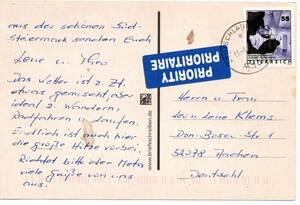 aus der schönen Süd-
steiermark senden Euch
Lene u.
Das Wetter ist z. Zt.
etwas gemischt, aber
ideal z. Wandern,
Radfahren u. laufen.
Endlich ist auch hier
die große Hitze vorbei.
Richtet bitte der Meta
viele Grüße von uns
aus.
PRIORITY
PRIORITAIRE
www.briefeschreiben.de
55
ÖSTERREICH
Herrn u. Frau
Klems
Don-Bosco-Str. 1
52078 Aachen
Deutschl.